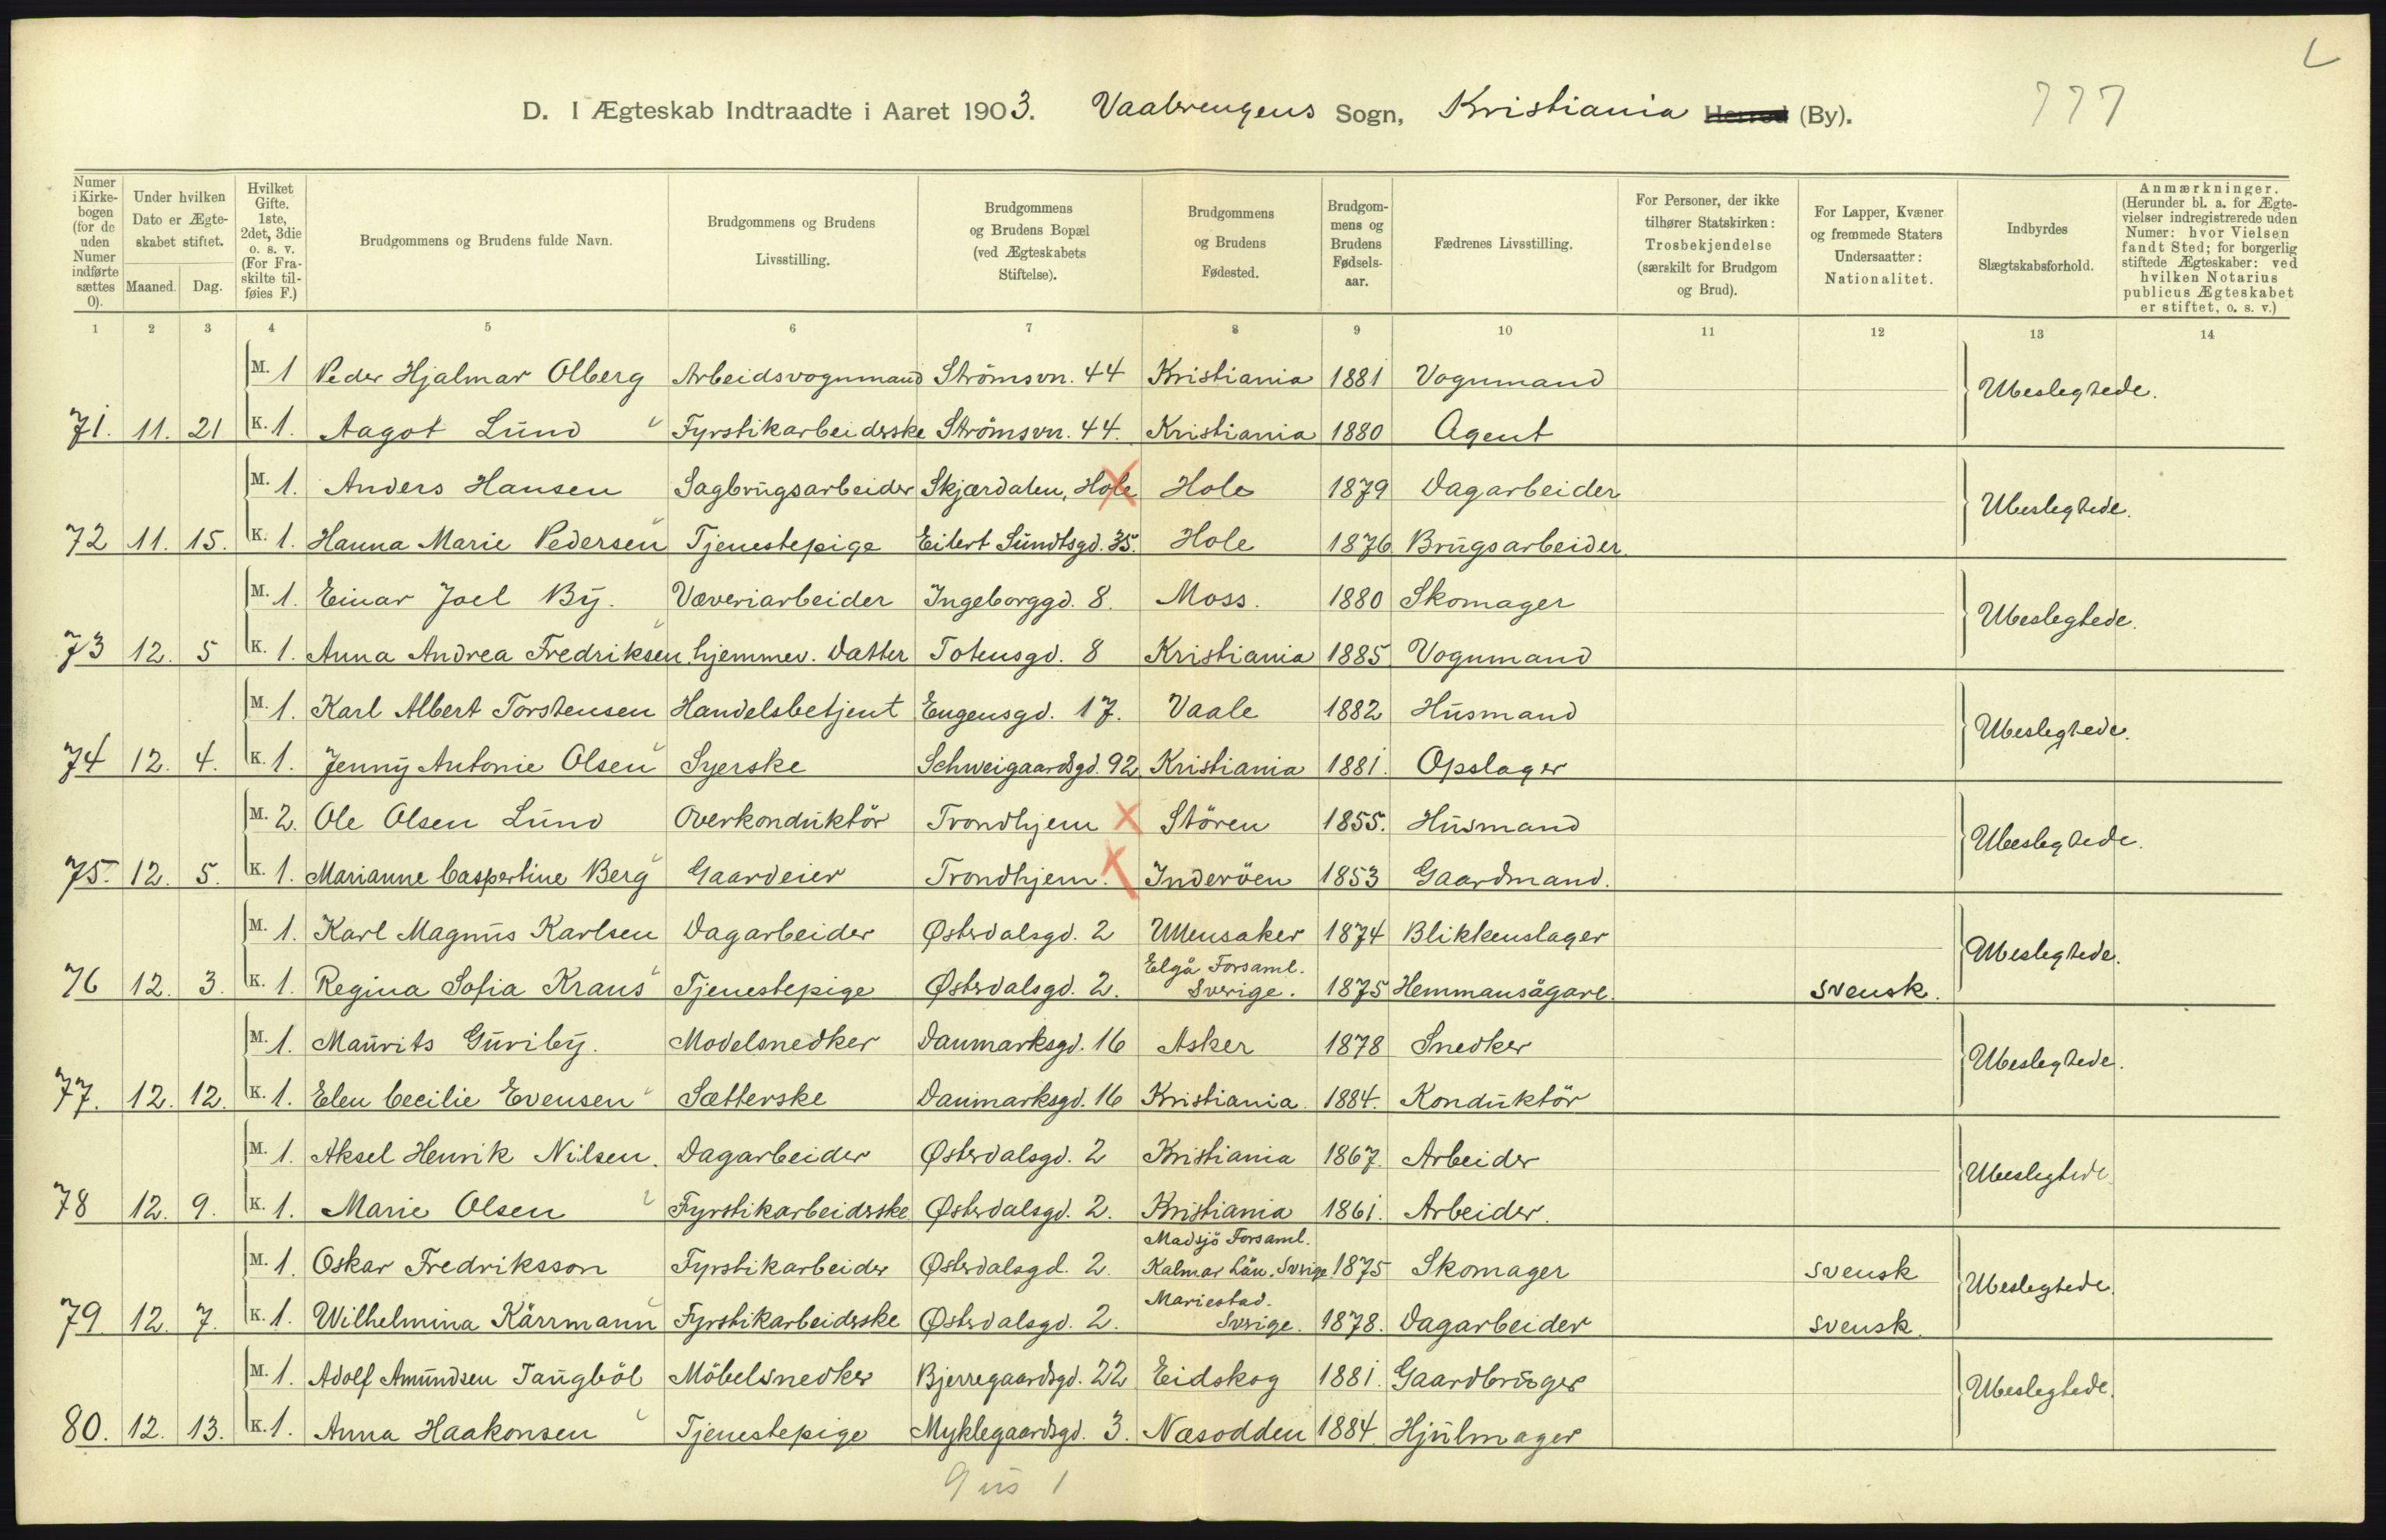 L
D. I Ægteskab Indtraadte i Aaret 1903. Vaalerengens Sogn, Kristiania Herred (By). 777
Numer i Kirkebogen (for de uden Numer indførte sættes 0).
Under hvilken Dato er Ægteskabet stiftet.
Maaned. Dag.
Hvilket Gifte. 1ste, 2det, 3die o. s. v. (For Fraskilte tilføies F.)
Brudgommens og Brudens fulde Navn.
Brudgommens og Brudens Livsstilling.
Brudgommens og Brudens Bopæl (ved Ægteskabets Stiftelse).
Brudgommens og Brudens Fødested.
Brudgommens og Brudens Fødselsaar.
Fædrenes Livsstilling.
For Personer, der ikke tilhører Statskirken: Trosbekjendelse (særskilt for Brudgom og Brud).
For Lapper, Kvæner og fremmede Staters Undersaatter: Nationalitet.
Indbyrdes Slægtskabsforhold.
Anmærkninger. (Herunder bl. a. for Ægtevielser indregistrerede uden Numer: hvor Vielsen fandt Sted; for borgerlig stiftede Ægteskaber: ved hvilken Notarius publicus Ægteskabet er stiftet, o. s. v.)
1 2 3 4 5 6 7 8 9 10 11 12 13 14
M. 1 Peder Hjalmar Olberg Arbeidsvognmand Strömsvn. 44 Kristiania 1881 Vognmand Ubeslegtede.
71. 11. 21 K. 1. Aagot Lund Fyrstikarbeiderske Strömsvn. 44. Kristiania 1880 Agent
M. 1. Anders Hansen Sagbrugsarbeider Skjærdalen, Hole Hole 1879 Dagarbeider Ubeslegtede.
72 11. 15. K. 1. Hanna Marie Pedersen Tjenestepige Eilert Sundtsgd. 35. Hole 1876 Brugsarbeider.
M. 1. Einar Joel By. Væveriarbeider Ingeborggd. 8. Moss. 1880 Skomager Ubeslegtede.
73 12. 5 K. 1. Anna Andrea Fredriksen hjemmev. Datter Totensgd. 8 Kristiania 1885 Vognmand
M. 1. Karl Albert Torstensen Handelsbetjent Eugensgd. 17. Vaale 1882 Husmand Ubeslegtede.
74 12. 4. K. 1. Jenny Antonie Olsen Syerske Schweigaardsgd. 92 Kristiania 1881. Opslager
M. 2. Ole Olsen Lund Overkonduktör Trondhjem Stören 1855. Husmand Ubeslegtede.
75. 12. 5. K. 1. Marianne Caspertine Berg Gaardeier Trondhjem. Inderöen 1853 Gaardmand.
M. 1. Karl Magnus Karlsen Dagarbeider Østerdalsgd. 2 Ullensaker 1874 Blikkenslager Ubeslegtede.
76 12. 3. K. 1. Regina Sofia Kraus Tjenestepige Østerdalsgd. 2. Elgå Forsaml. Sverige. 1875 Hemmansägare. svensk.
M. 1. Maurits Guriby. Modelsnedker Danmarksgd. 16 Asker 1878 Snedker Ubeslegtede.
77. 12. 12. K. 1. Elen Cecilie Evensen Sætterske Danmarksgd. 16 Kristiania. 1884. Konduktör
M. 1. Aksel Henrik Nilsen. Dagarbeider Østerdalsgd. 2 Kristiania 1867. Arbeider Ubeslegtede.
78 12. 9. K. 1. Marie Olsen Fyrstikarbeiderske Østerdalsgd. 2. Kristiania 1861. Arbeider.
M. 1. Oskar Fredriksson Fyrstikarbeider Østerdalsgd. 2. Madsjö Forsaml. Kalmar Län. Sverige 1875 Skomager svensk Ubeslegtede.
79. 12. 7. K. 1. Wilhelmina Kärrmann Fyrstikarbeiderske Østerdalsgd. 2. Mariestad. Sverige. 1878. Dagarbeider svensk.
M. 1. Adolf Amundsen Taugböl Möbelsnedker Bjerregaardsgd. 22 Eidskog 1881. Gaardbruger Ubeslegtede.
80. 12. 13. K. 1. Anna Haakonsen Tjenestepige Myklegaardsgd. 3. Næsodden 1884. Hjulmager